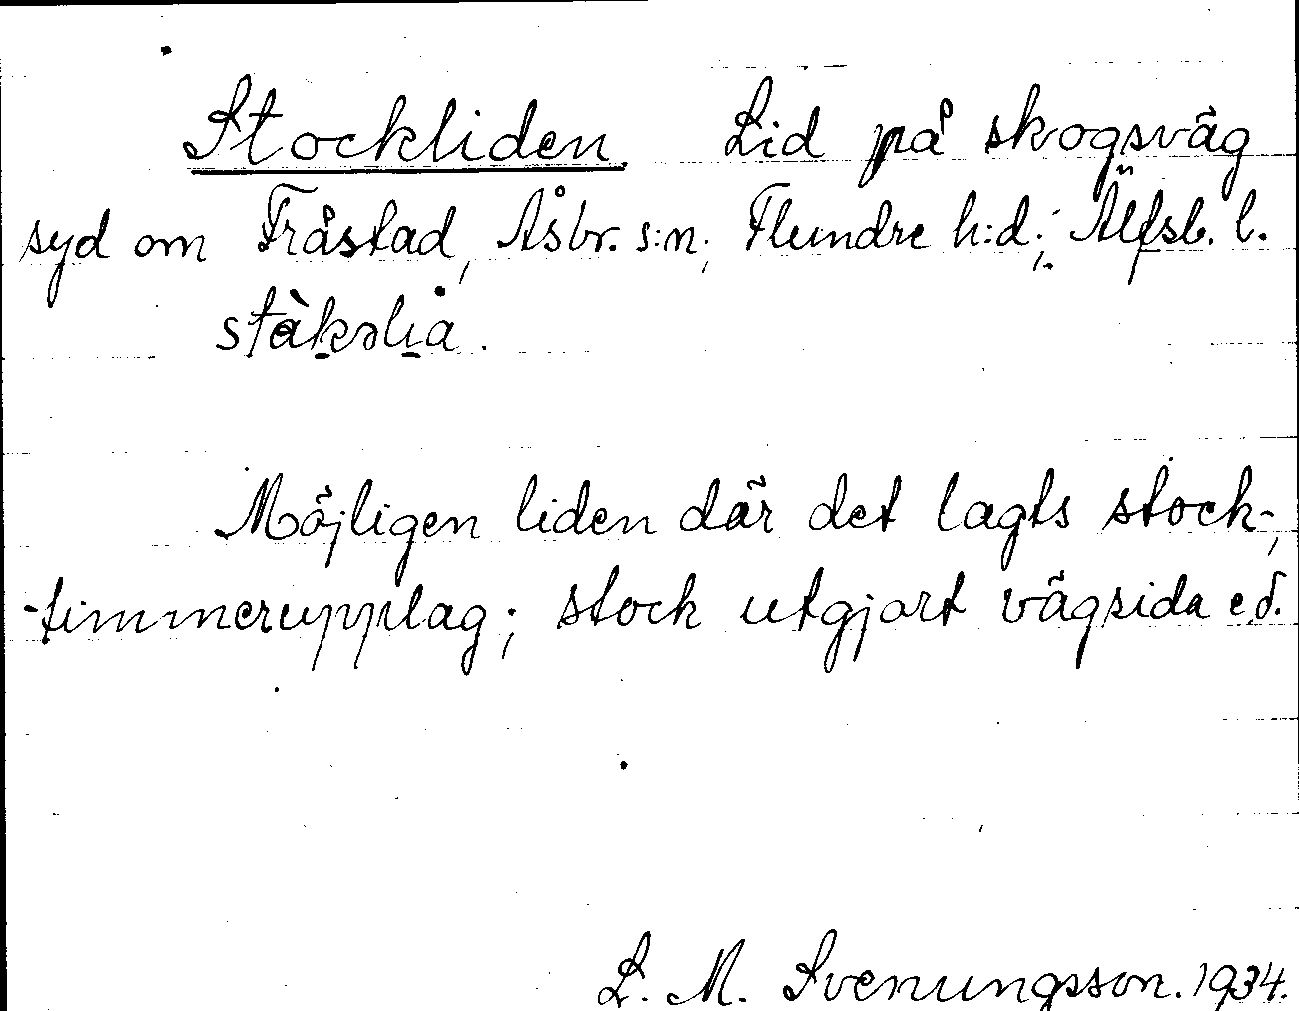 Stockliden. Lid på skogsväg
syd om Fråstad, Åsbr. s:n; Flundre h:d; Älfsb. l.
Möjligen liden där det lagts stock-,
-timmerupplag; stock utgjort vägsida e.d.
L. M. Svenungsson. 1934.